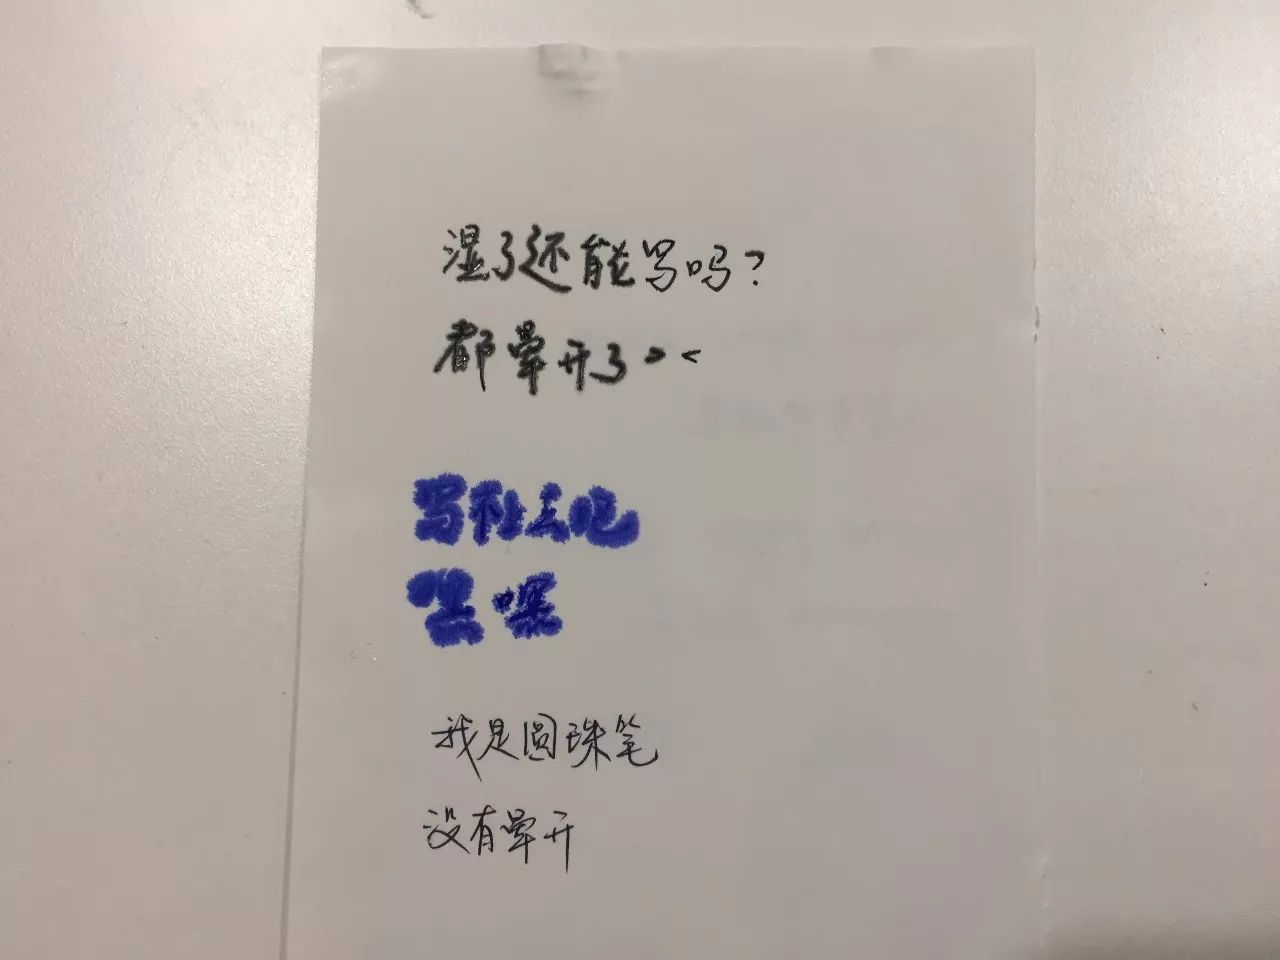 湿了还能写吗？
都晕开了> <
写不上去吧
嘿嘿
我是圆珠笔
没有晕开